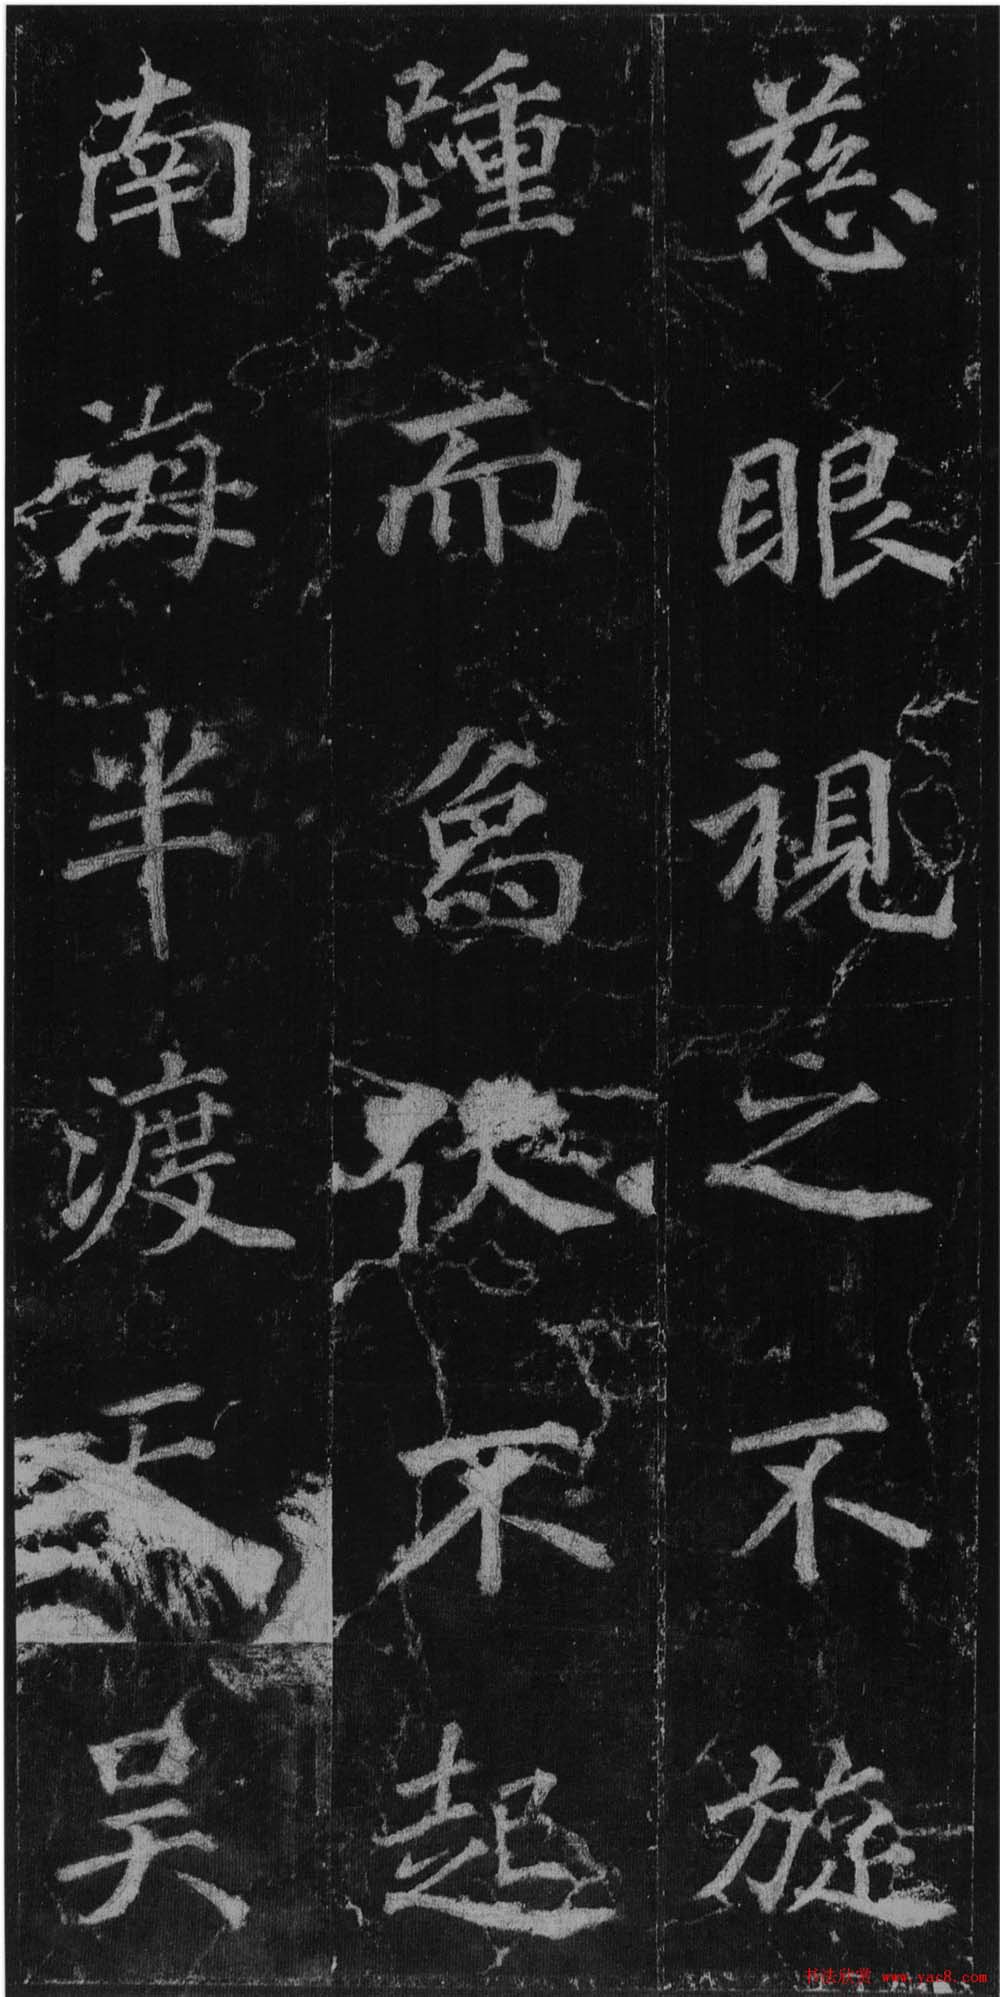 慈眼視之不旋
踵而為伏不起
南海半渡
吴
书法欣赏 www.yac8.com